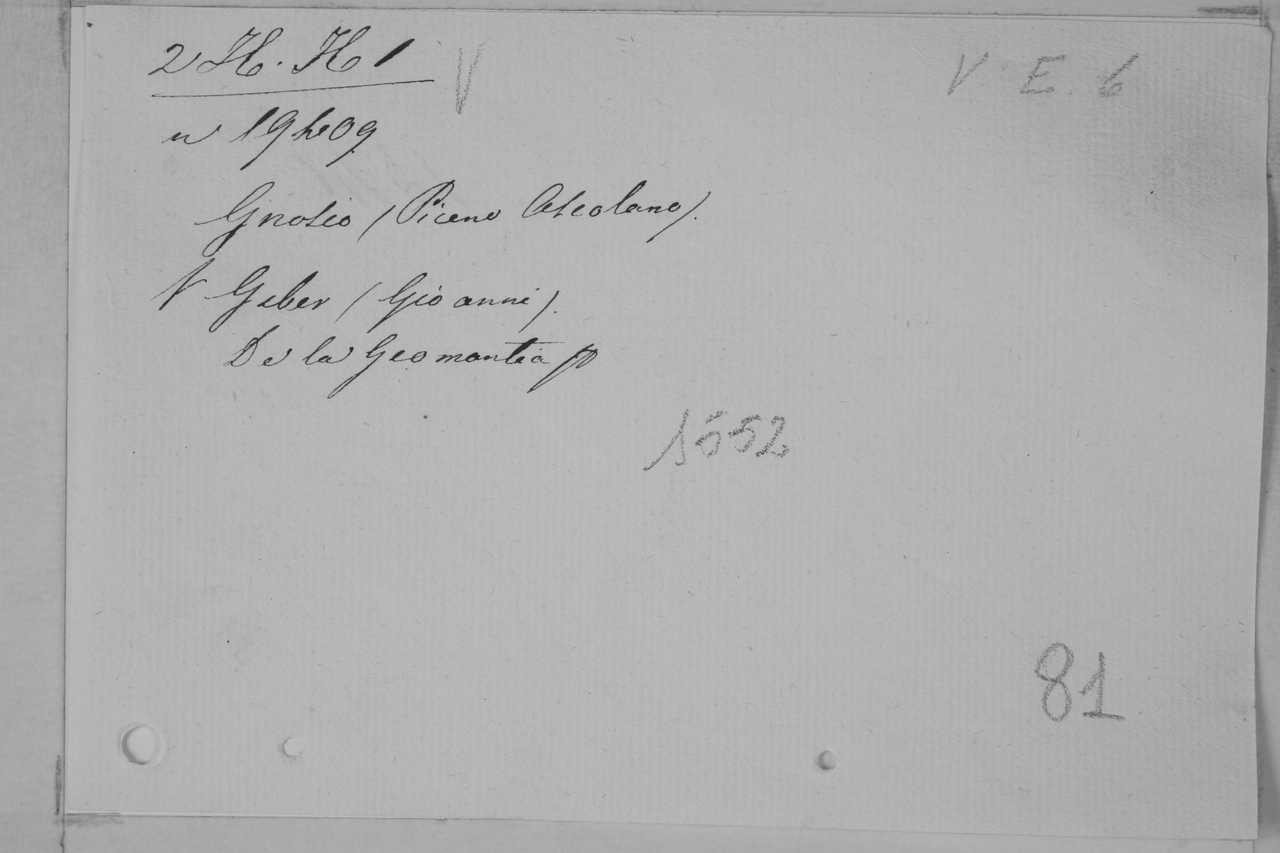 2 H. H 1 V
V E. 6
n 19409
Gnosio (Piceno Ascolano).
V Geber (Gioanni).
De la Geomantia
1552
81